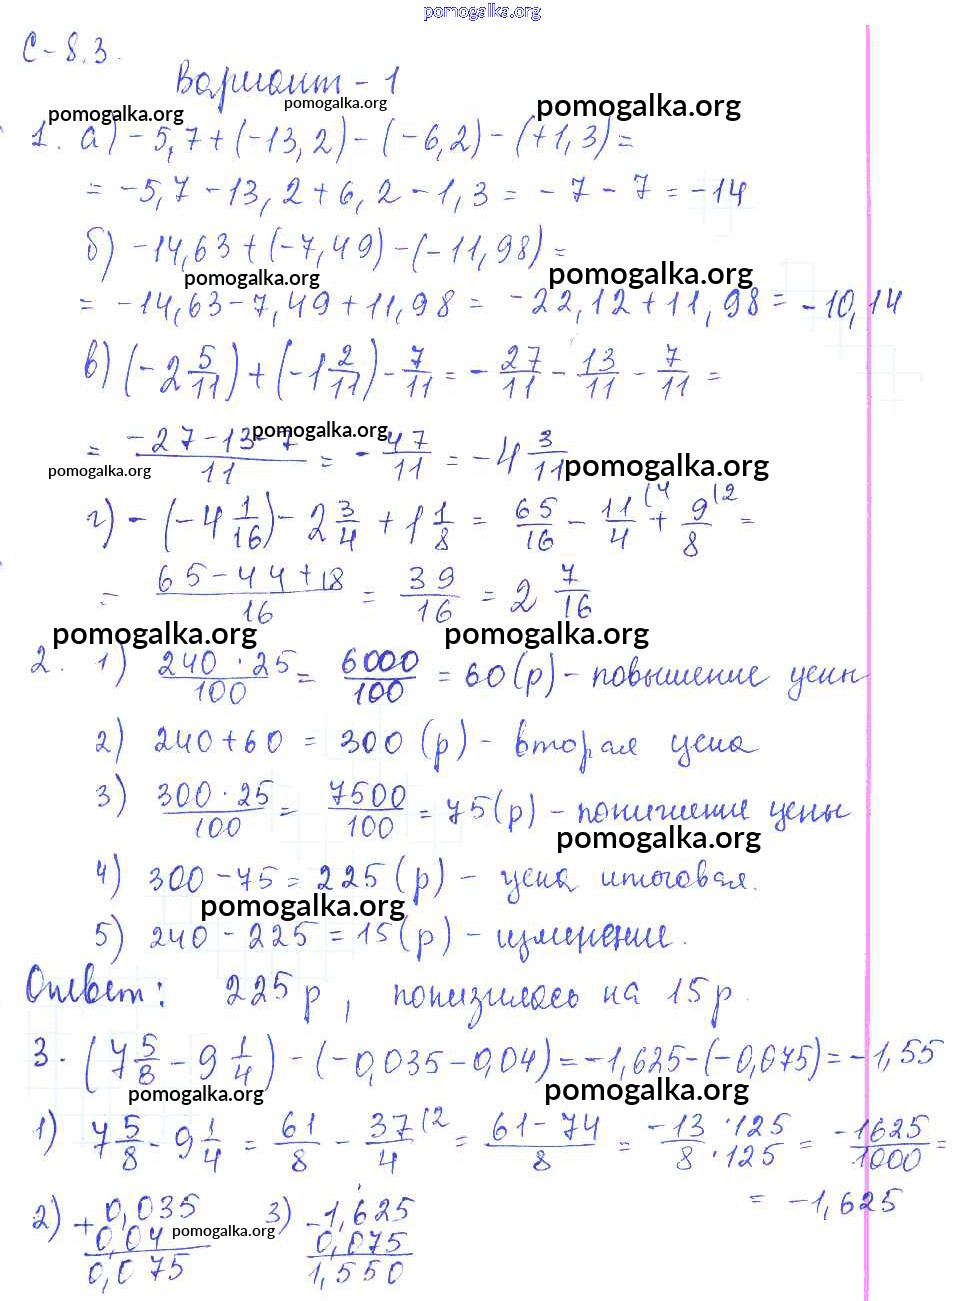 pomogalka.org
С-8.3.
Вариант - 1
pomogalka.org pomogalka.org pomogalka.org
1. а) -5,7 + (-13,2) - (-6,2) - (+1,3) =
= -5,7 - 13,2 + 6,2 - 1,3 = -7 - 7 = -14
б) -14,63 + (-7,49) - (-11,98) =
pomogalka.org pomogalka.org
= -14,63 - 7,49 + 11,98 = -22,12 + 11,98 = -10,14
в) (-2 5/11) + (-1 2/11) - 7/11 = - 27/11 - 13/11 - 7/11 =
pomogalka.org
= (-27-13-7)/11 = - 47/11 = -4 3/11
pomogalka.org pomogalka.org
г) - (-4 1/16) - 2 3/4 + 1 1/8 = 65/16 - 11/4 (4 + 9/8 (2 =
= (65-44+18)/16 = 39/16 = 2 7/16
pomogalka.org pomogalka.org
2. 1) (240·25)/100 = 6000/100 = 60 (р) - повышение цены
2) 240 + 60 = 300 (р) - вторая цена
3) (300·25)/100 = 7500/100 = 75 (р) - понижение цены
pomogalka.org
4) 300 - 75 = 225 (р) - цена итоговая.
pomogalka.org
5) 240 - 225 = 15 (р) - изменение.
Ответ: 225 р, понизилась на 15 р.
3. (7 5/8 - 9 1/4) - (-0,035 - 0,04) = -1,625 - (-0,075) = -1,55
pomogalka.org pomogalka.org
1) 7 5/8 - 9 1/4 = 61/8 - 37/4 (2 = (61-74)/8 = (-13·125)/(8·125) = -1625/1000 =
= -1,625
2) + 0,035 3) -1,625
0,04 pomogalka.org 0,075
0,075 1,550